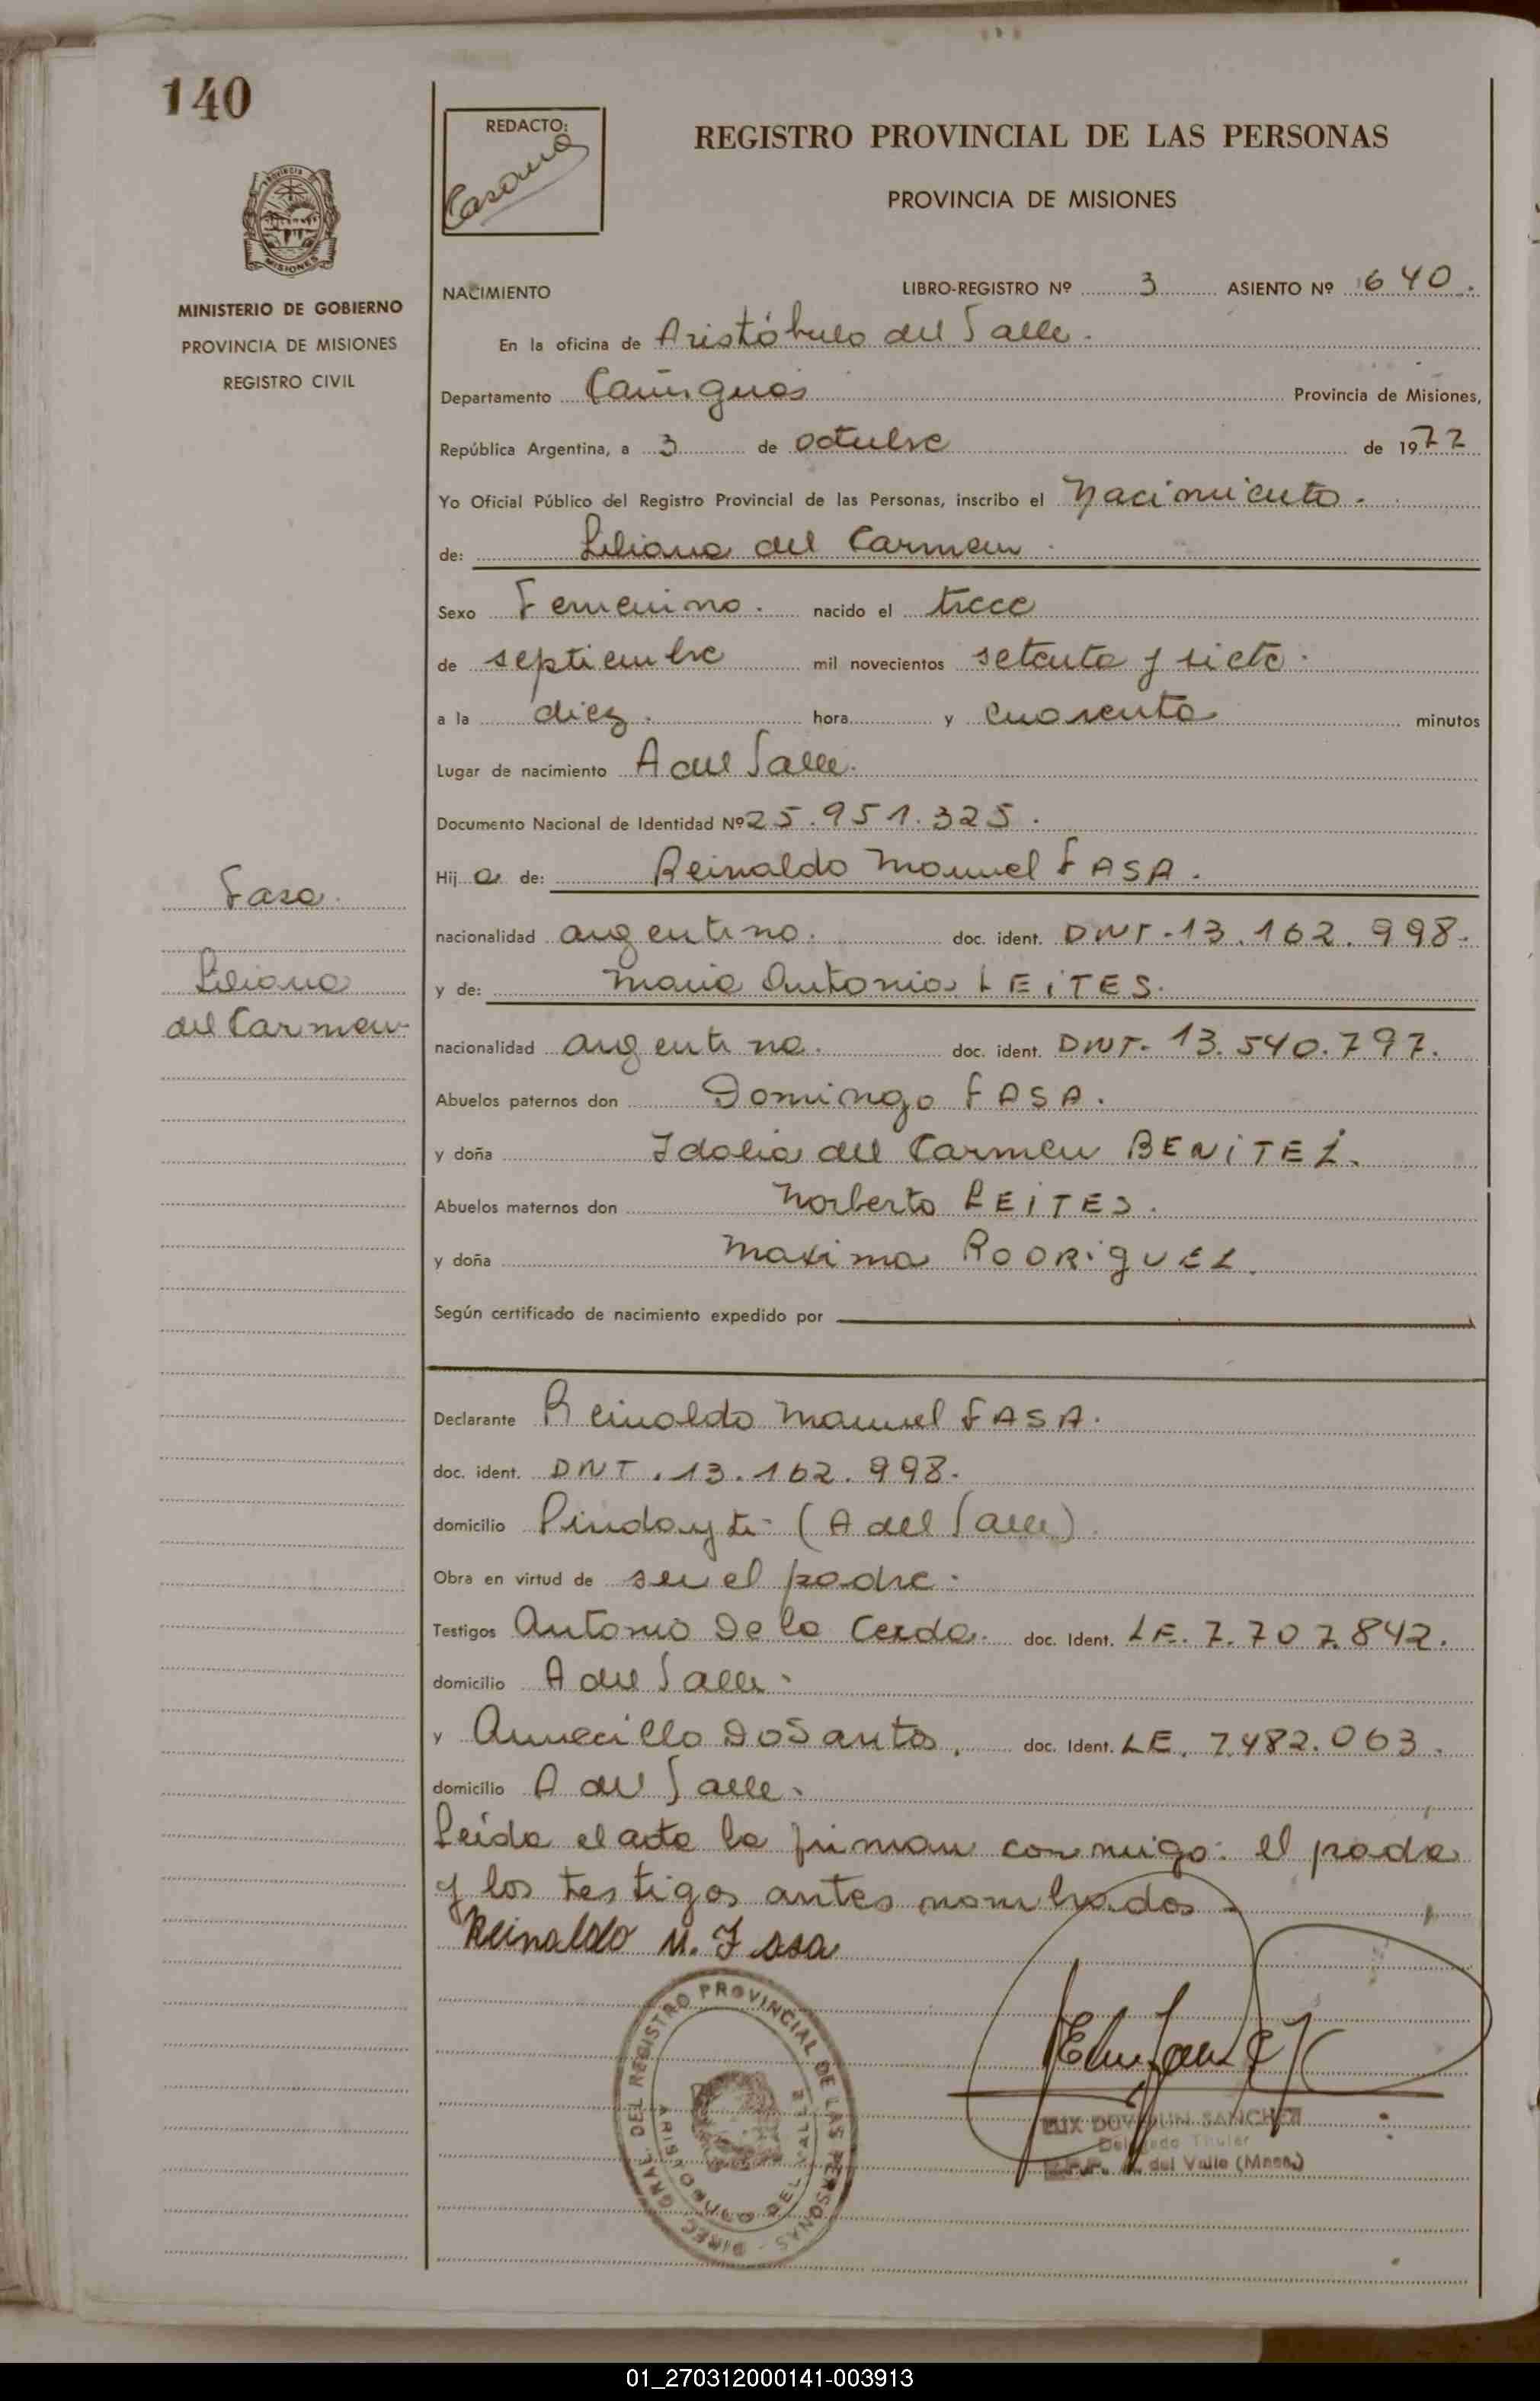 140
REDACTO:
Casana
REGISTRO PROVINCIAL DE LAS PERSONAS
PROVINCIA DE MISIONES
PROVINCIA
MISIONES
MINISTERIO DE GOBIERNO
PROVINCIA DE MISIONES
REGISTRO CIVIL
NACIMIENTO LIBRO-REGISTRO Nº 3 ASIENTO Nº 640.
En la oficina de Aristóbulo del Valle.
Departamento Cainguás Provincia de Misiones,
República Argentina, a 3 de octubre de 1977
Yo Oficial Público del Registro Provincial de las Personas, inscribo el Nacimiento.
de: Liliana del Carmen.
Sexo Femenino. nacido el trece
de septiembre mil novecientos setenta y siete.
a la diez. hora y cuarenta minutos
Lugar de nacimiento A del Valle.
Documento Nacional de Identidad Nº 25.951.325.
Hij a de: Reinaldo Manuel FASA.
nacionalidad argentino. doc. ident. DNI-13.162.998.
y de: Maria Antonia LEITES.
nacionalidad argentina. doc. ident. DNI-13.540.797.
Abuelos paternos don Domingo FASA.
y doña Idalia del Carmen BENITEZ.
Abuelos maternos don Norberto LEITES.
y doña Maxima RODRIGUEZ.
Según certificado de nacimiento expedido por
Fasa.
Liliana
del Carmen
Declarante Reinaldo Manuel FASA.
doc. ident. DNI.13.162.998.
domicilio Pindayti-(A del Valle).
Obra en virtud de ser el padre.
Testigos Antonio De la Cerda. doc. Ident. LE. 7.707.842.
domicilio A del Valle.
y DoSantos. doc. Ident. LE. 7.482.063.
domicilio A del Valle.
Leída el acta la firman conmigo: el padre
y los testigos antes nombrados.
Reinaldo M. Fasa
DIREC. GRAL. DEL REGISTRO PROVINCIAL DE LAS PERSONAS
ARISTOBULO DEL VALLE
SANCHEZ
Delegado Titular
del Valle (Mnes.)
01_270312000141-003913